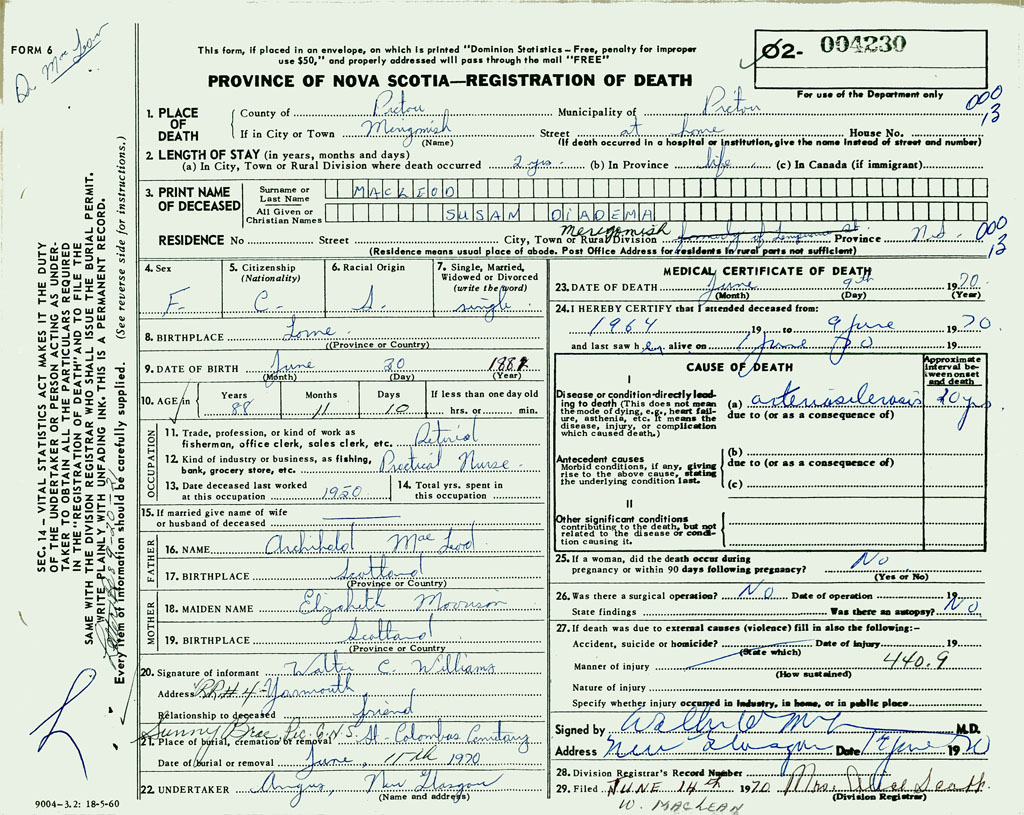 FORM 6
Dr. MacLean
This form, if placed in an envelope, on which is printed "Dominion Statistics – Free, penalty for improper
use $50," and properly addressed will pass through the mail "FREE"
PROVINCE OF NOVA SCOTIA—REGISTRATION OF DEATH
02- 004230
For use of the Department only
000
13
SEC. 14 – VITAL STATISTICS ACT MAKES IT THE DUTY
OF THE UNDERTAKER OR PERSON ACTING AS UNDER-
TAKER TO OBTAIN ALL THE PARTICULARS REQUIRED
IN THE "REGISTRATION OF DEATH" AND TO FILE THE
SAME WITH THE DIVISION REGISTRAR WHO SHALL ISSUE THE BURIAL PERMIT.
WRITE PLAINLY WITH UNFADING INK. THIS IS A PERMANENT RECORD.
Every item of information should be carefully supplied. (See reverse side for instructions.)
1. PLACE OF DEATH
County of Pictou Municipality of Pictou
If in City or Town Merigomish Street at home House No.
(Name) (If death occurred in a hospital or institution, give the name instead of street and number)
2. LENGTH OF STAY (in years, months and days)
(a) In City, Town or Rural Division where death occurred 2 yrs. (b) In Province life (c) In Canada (if immigrant)
3. PRINT NAME OF DECEASED
Surname or Last Name MACLEOD
All Given or Christian Names SUSAN DIADEMA
Merigomish
RESIDENCE No Street City, Town or Rural Division formerly of Province N.S.
000
13
(Residence means usual place of abode. Post Office Address for residents in rural parts not sufficient)
4. Sex
F.
5. Citizenship (Nationality)
C.
6. Racial Origin
S.
7. Single, Married, Widowed or Divorced (write the word)
single
8. BIRTHPLACE Lorne
(Province or Country)
9. DATE OF BIRTH June 20 188
(Month) (Day) (Year)
10. AGE in Years Months Days If less than one day old
88 11 10 hrs. or min.
OCCUPATION
11. Trade, profession, or kind of work as
fisherman, office clerk, sales clerk, etc. Retired
12. Kind of industry or business, as fishing,
bank, grocery store, etc. Practical Nurse
13. Date deceased last worked
at this occupation 1950
14. Total yrs. spent in
this occupation
15. If married give name of wife
or husband of deceased
FATHER
16. NAME Archibald MacLeod
17. BIRTHPLACE Scotland
(Province or Country)
MOTHER
18. MAIDEN NAME Elizabeth Morrison
19. BIRTHPLACE Scotland
(Province or Country)
20. Signature of informant Walter C. Williams
Address RR#4 - Yarmouth
Relationship to deceased friend
Sunny Brae Pic. Co. N.S.
21. Place of burial, cremation or removal St. Colombas Cemitary
Date of burial or removal June, 11th 1970
22. UNDERTAKER Angus, New Glasgow
(Name and address)
9004–3.2: 18-5-60
MEDICAL CERTIFICATE OF DEATH
23. DATE OF DEATH June 9th 1970
(Month) (Day) (Year)
24. I HEREBY CERTIFY that I attended deceased from:
1964 19 to 9 June 1970
and last saw her alive on June 70 19
CAUSE OF DEATH
Approximate interval between onset and death
I
Disease or condition directly lead-
ing to death (This does not mean
the mode of dying, e.g., heart fail-
ure, asthenia, etc. It means the
disease, injury, or complication
which caused death.)
(a) arteriosclerosis 20 yrs
due to (or as a consequence of)
Antecedent causes
Morbid conditions, if any, giving
rise to the above cause, stating
the underlying condition last.
(b)
due to (or as a consequence of)
(c)
II
Other significant conditions
contributing to the death, but not
related to the disease or condi-
tion causing it.
25. If a woman, did the death occur during
pregnancy or within 90 days following pregnancy? No
(Yes or No)
26. Was there a surgical operation? No Date of operation 19
State findings Was there an autopsy? No
27. If death was due to external causes (violence) fill in also the following:-
Accident, suicide or homicide? Date of injury 19
(State which)
Manner of injury 440.9
(How sustained)
Nature of injury
Specify whether injury occurred in industry, in home, or in public place
Signed by M.D.
Address New Glasgow Date June 1970
28. Division Registrar's Record Number
29. Filed JUNE 14th 1970 Mrs. Alice Scott
(Division Registrar)
W. MACLEAN